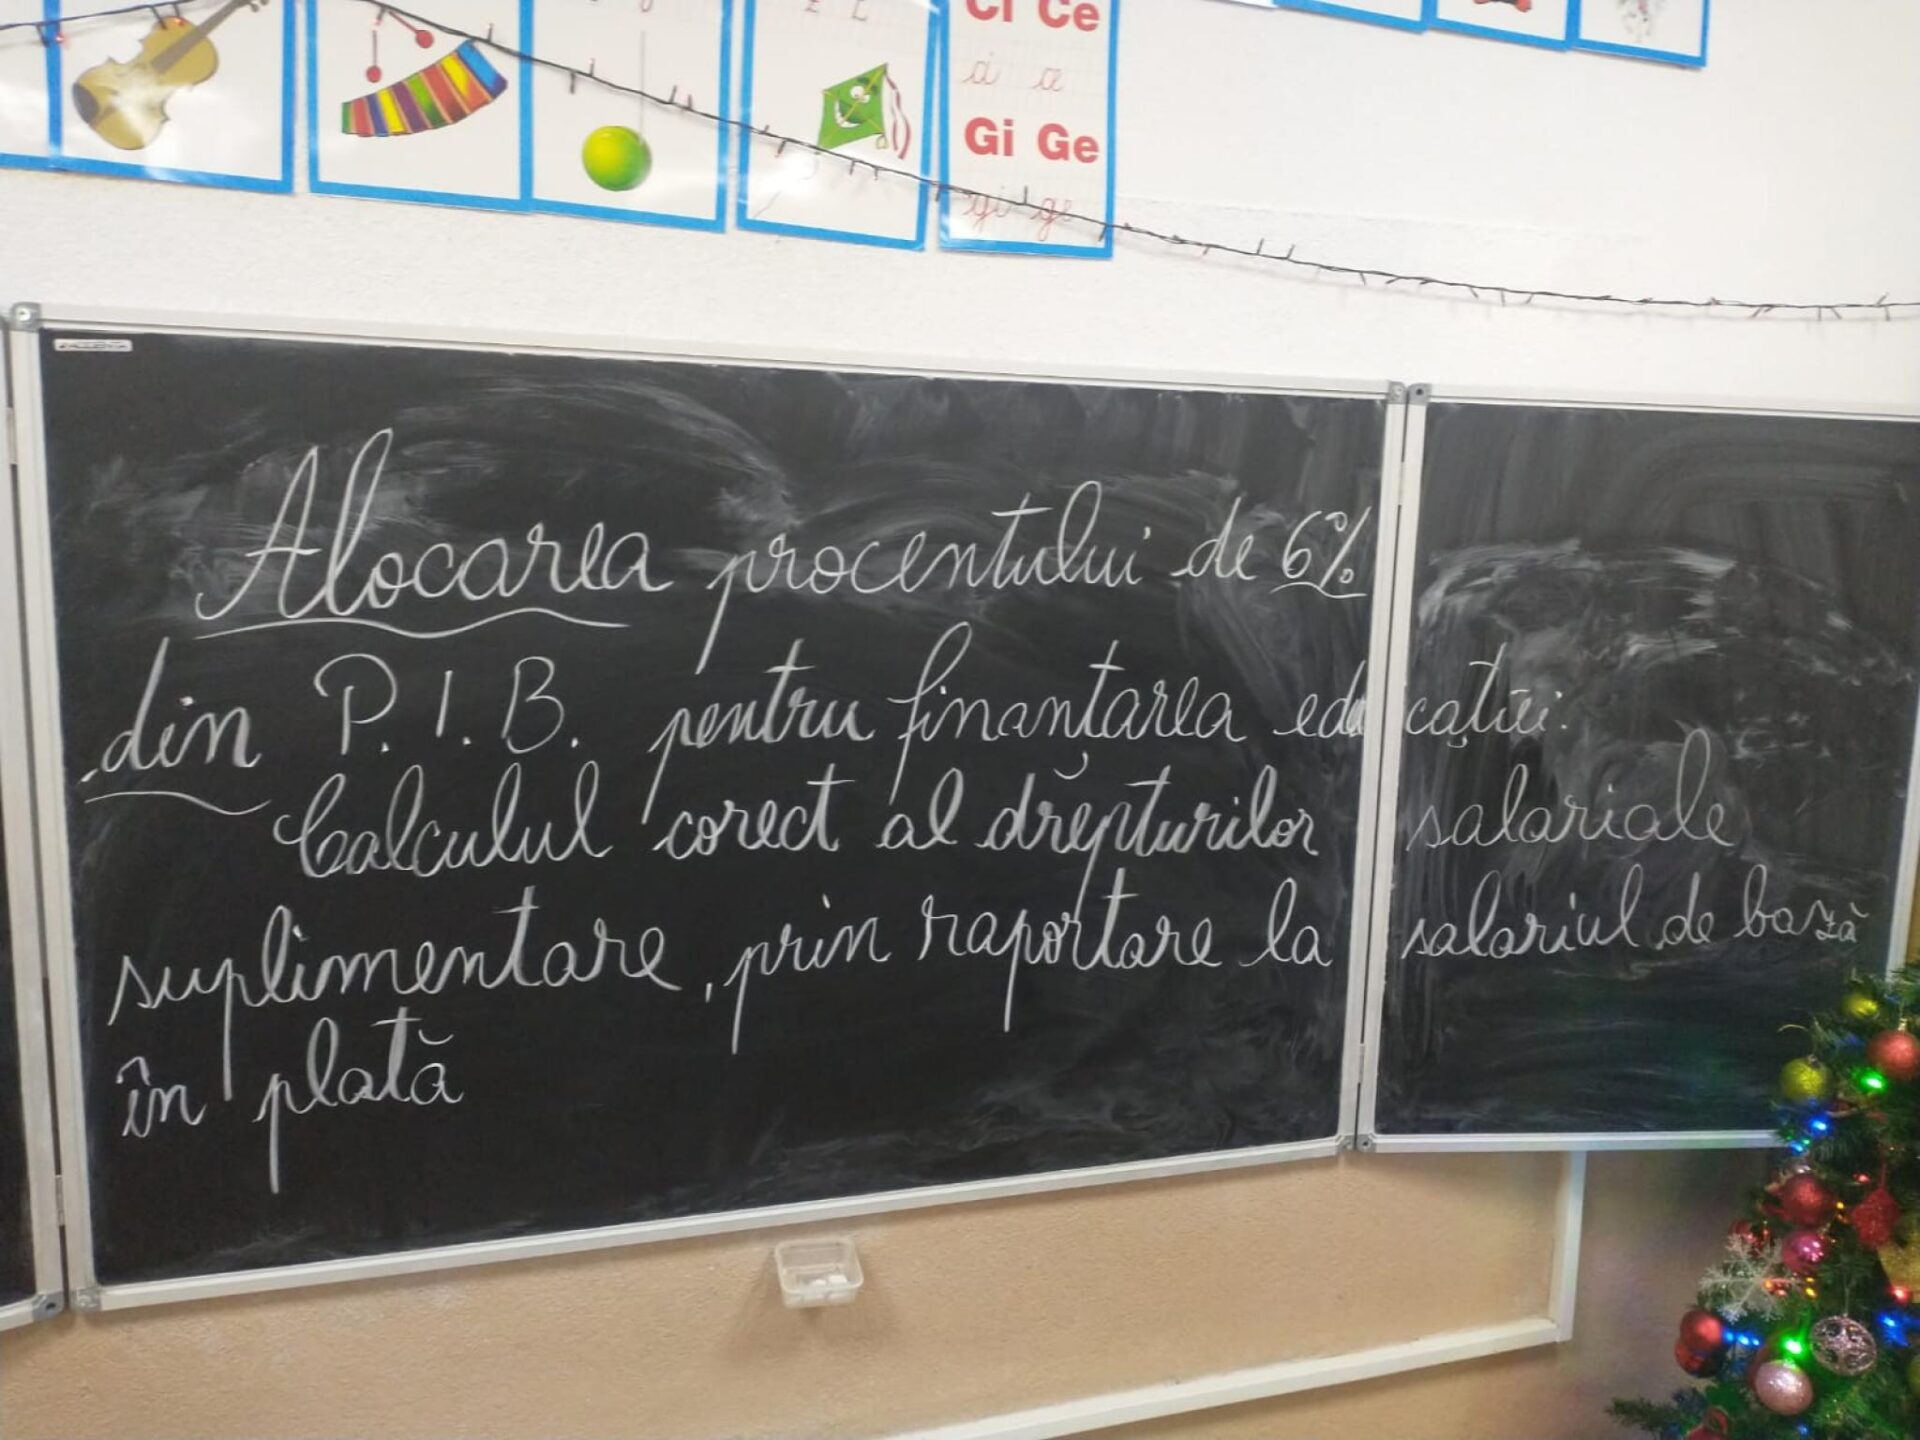 Ci Ce
ci ce
Gi Ge
gi ge
Alocarea procentului de 6%
din P.I.B. pentru finanțarea educației.
Calculul corect al drepturilor salariale
suplimentare, prin raportare la salariul de bază
în plată